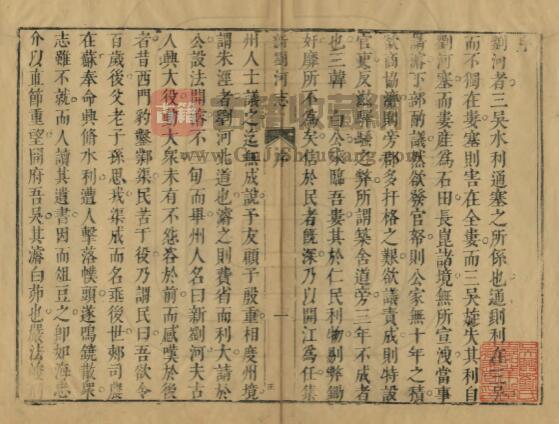 序
劉河者三吳水利通塞之所係也通則利在三吳
而不獨在婁塞則害在全婁而三吳並失其利自
劉河塞而婁產爲石田長崑諸境無所宣洩當事
請濬下部酌議
欲協濟則旁郡多扞格之艱欲議責成則特設
官吏反滋驛騷之弊所謂築舍道旁三年不成者
也三韓白公來臨吾婁其於仁民利物剔弊鋤
奸靡所不爲矣信於民者既深乃以開江爲任集
新劉河志
序
一
州人士議之迄無成說予友顧子殷重相度州境
謂朱涇者劉河北道也濬之則費省而利大請於
公設法開濬不旬而畢州人名曰新劉河夫古
人興大役動大衆未有不怨咨於前而感嘆於後
者昔西門豹鑿鄴渠民苦于役乃謂民曰吾欲令
百歲後父老子孫思我渠成而名垂後世郟司農
在蘇奉命興脩水利遭人擊落幞頭遂鳴鐃散衆
志雖不就而人讀其遺書因而俎豆之卽如海忠
介以直節重望開府吾吳其濬白茆也嚴法峻